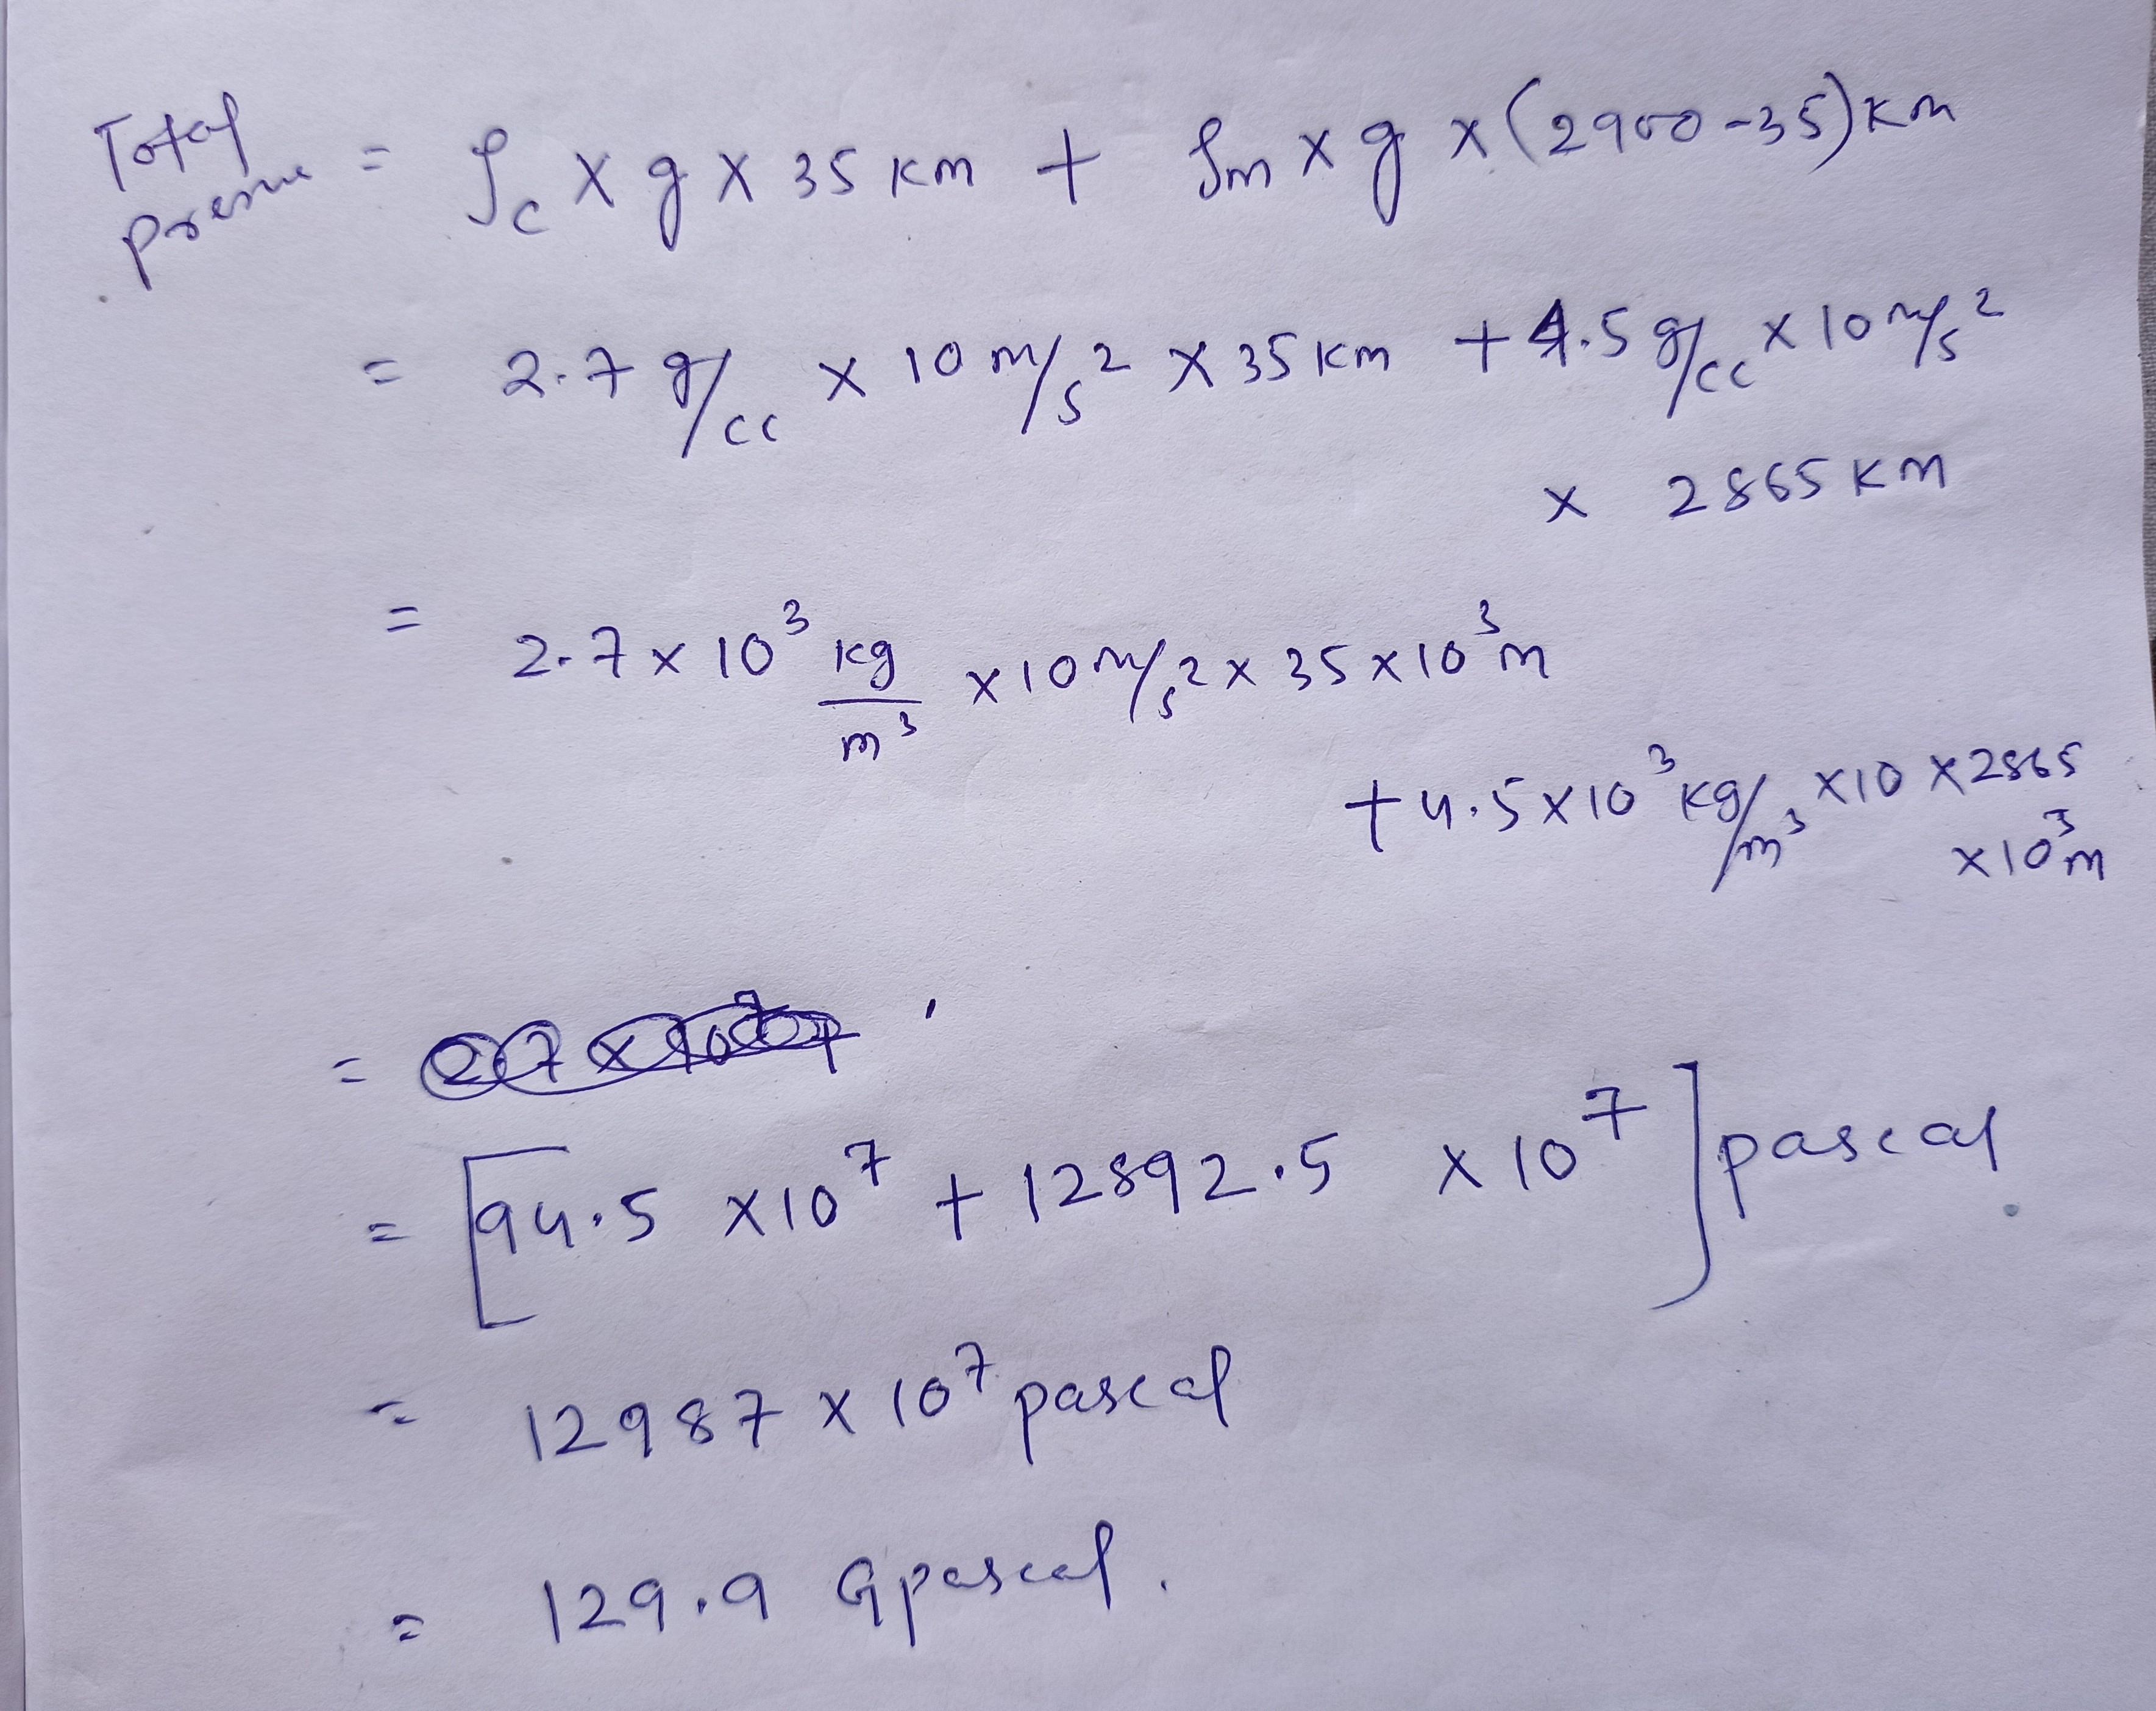 Total pressure = ρc x g x 35 km + ρm x g x (2900-35) km
= 2.7 g/cc x 10 m/s² x 35 km + 4.5 g/cc x 10 m/s²
x 2865 km
= 2.7 x 10³ kg/m³ x 10 m/s² x 35 x 10³ m
+ 4.5 x 10³ kg/m³ x 10 x 2865
x 10³ m
=
= [94.5 x 10⁷ + 12892.5 x 10⁷] pascal
= 12987 x 10⁷ pascal
= 129.9 Gpascal.